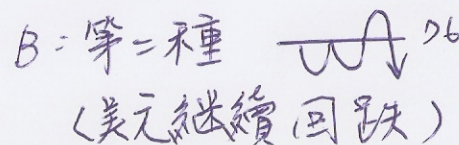 B：第二種 >6
（美元繼續回跌）